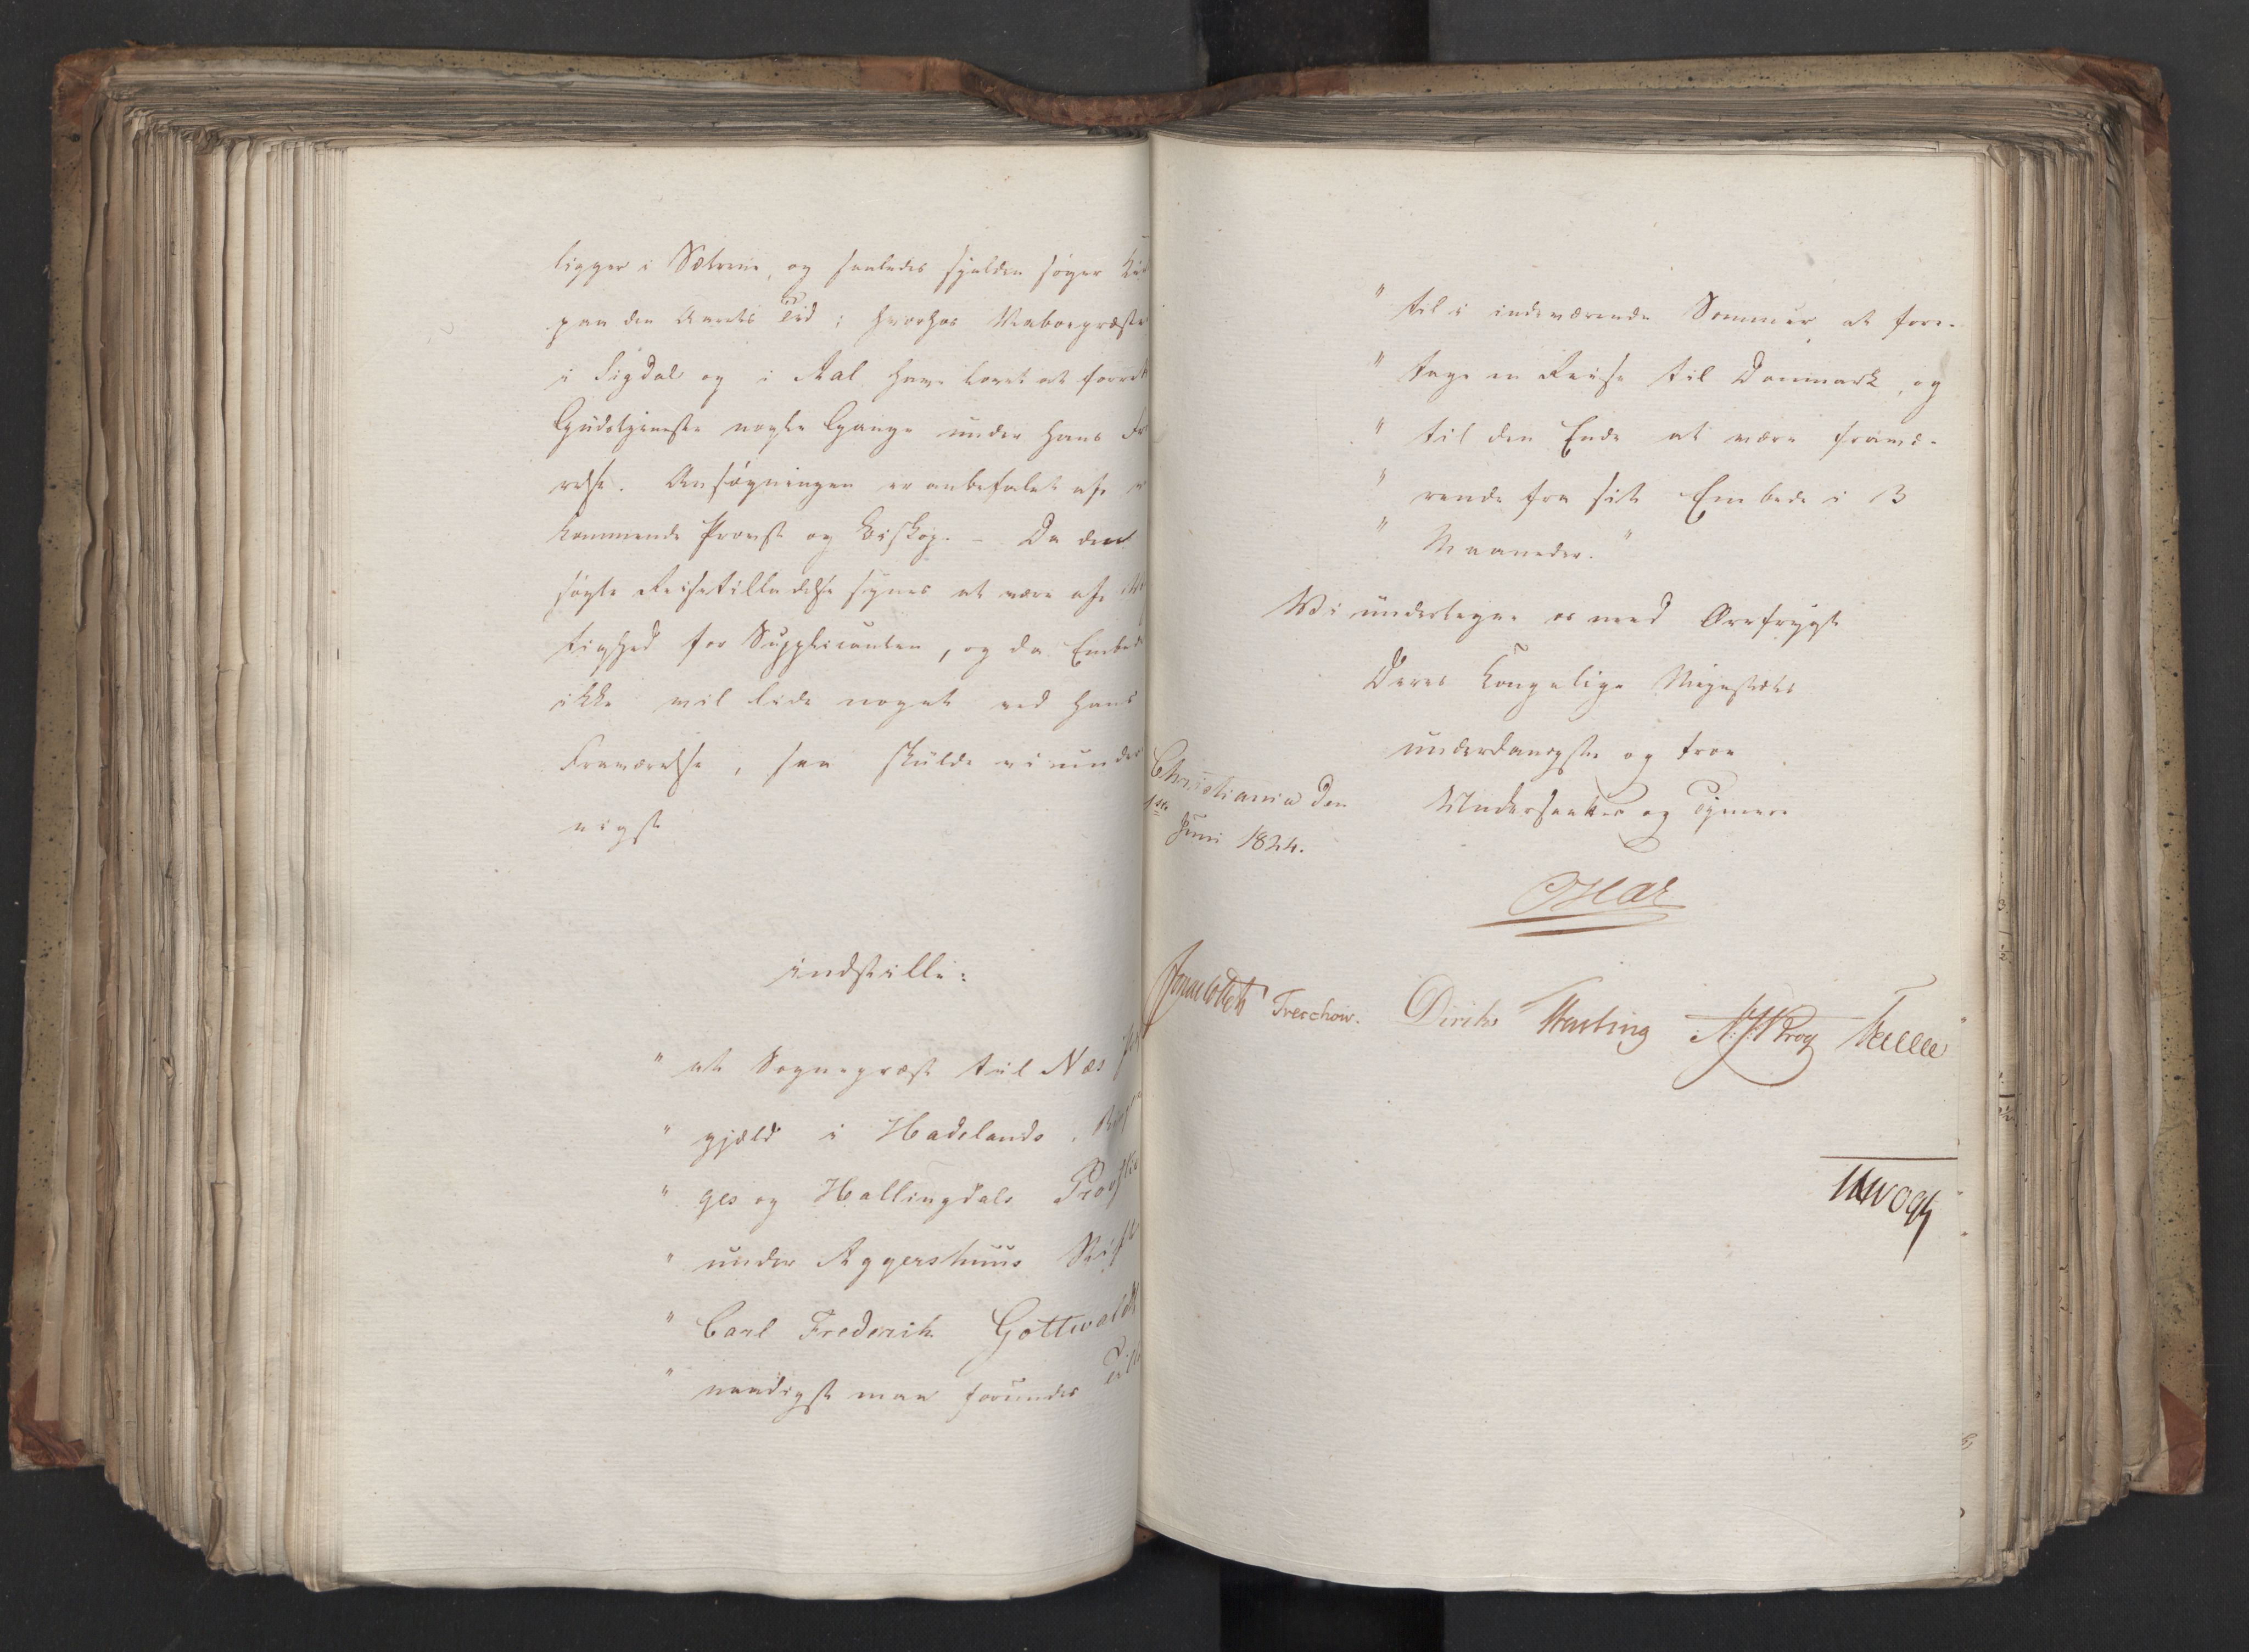 ligger i Sætrene, og saaledes sjelden søger
paa den Aarets Tid; hvorhos Naboepræste
i Sigdal og i Aal have lovet at forret
Gudstjeneste nogle Gange under hans Fr
relse. Ansøgningen er anbefalet af
kommende Provst og Biskop. – Da den
søgte Reisetilladelse synes at være af
tighed for Supplicanten, og da Embed
ikke vil lide noget ved hans
Fraværelse, saa skulde vi under
nigst
indstille:
" at Sognepræst til Næs
" gjæld i Hadelands,
" ges og Hallingdals Provstie
" under Aggershuus Stift
" Carl Frederich Gottwaldt
" naadigst maa forundes Till
" til i indeværende Sommer at fore-
" tage en Reise til Danmark, og
" til den Ende at være fravæ-
" rende fra sit Embede i 3
" Maaneder."
Vi undertegne os med Ærefrygt
Deres Kongelige Majestæts
underdanigste og troe
Undersaatter og Tjenere
Christiania den
1ste Juni 1824.
Oscar
Jonas Collett Treschow. Diriks Fasting Krog